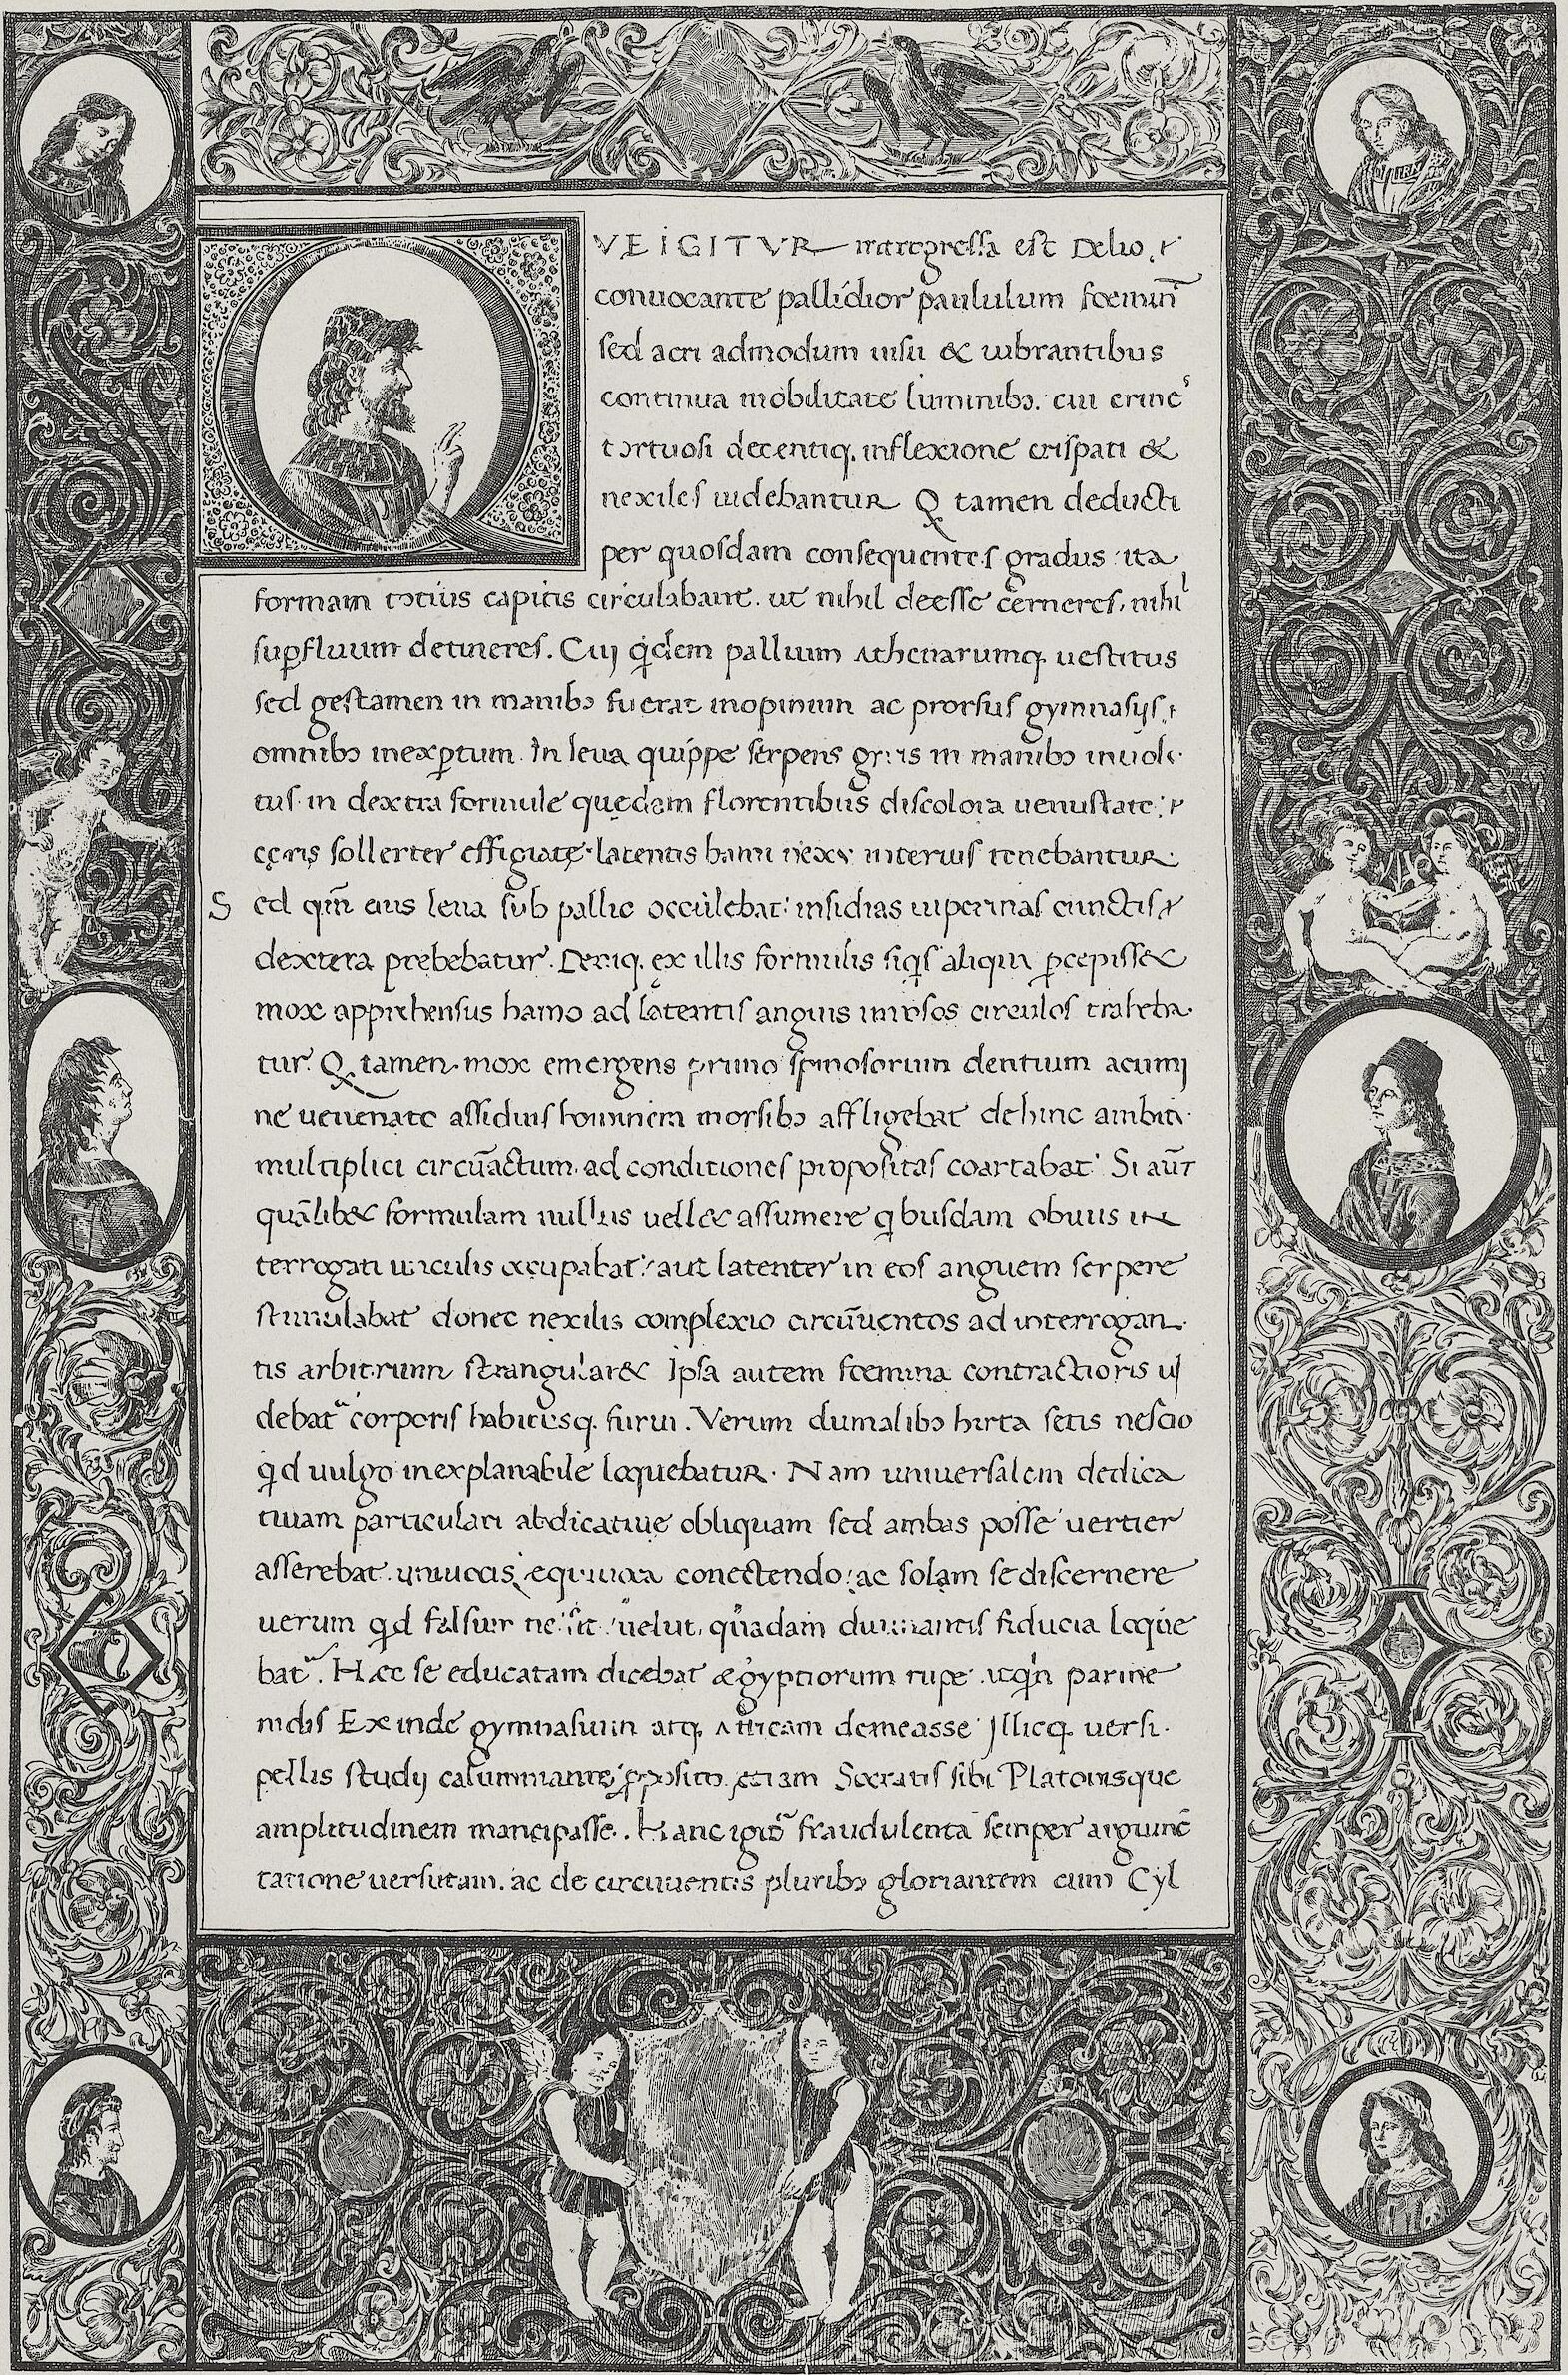 QVE IGITVR intergressa est Delio, &
conuocante pallidior paululum foemin̄
sed acri admodum uisu & uibrantibus
continua mobilitate luminibꝫ. cui crinc᾽
tortuosi decentiq. inflexione crispati &
nexiles uidebantur Q tamen deducti
per quosdam consequentes gradus ita
formam totius capitis circulabant. ut nihil deesse cerneres, nihil
suꝑfluum detineres. Cuj qͥdem pallium Athenarumq. uestitus
sed gestamen in manibꝫ fuerat inopinum ac prorsus gymnasijs,
omnibꝫ inexꝑtum. In leua quippe serpens in manibꝫ inuolu
tus. in dextra formule quędam florentibus discolora uenustate:
cęris sollerter effigiatę. latentis hami nexu interius tenebantur
Sed qm̄ eius leua sub pallio occulebat: insidias uiperinas cunctis
dextera prębebatur. Deniq. ex illis formulis siqͥs aliquā ꝑcepisset
mox apprehensus hamo ad latentis anguis circulos traheba
tur. Q tamen mox emergens primo spinosorum dentium acumi
ne uenenato assiduis hominem morsibꝫ affligebat dehinc ambitu
multiplici circūactum. ad conditiones propositas coartabat. Si aūt
quālibet formulam nullus uellet assumere qͥbusdam obuius in
terrogati uinculis occupabat: aut latenter in eos anguem serpere
stimulabat donec nexilis complexio circūuentos ad interrogan
tis arbitrium strangularet Ipsa autem foemina contractioris uj
debatᵘ corporis habitusq. furui. Verum dumalibꝫ hirta setis nescio
qͥd uulgo inexplanabile loquebatur. Nam uniuersalem dedica
tiuam particulari abdicatiuę obliquam sed ambas posse uertier
asserebat. uniuocis ęquiuoca conectendo: ac solam se discernere
uerum qͥd falsum ne sit uelut. quadam diuinantis fiducia loque
batᵘ. Hęc se educatam dicebat ægyptiorum rupe. atqͥn parme
nidis Exinde gymnasium atq. Atticam demeasse Illicq. uersi
pellis studij calumniante ꝓposito etiam Socratis sibi Platonisque
amplitudinem mancipasse. Hanc igitᵘ fraudulenta semper argumē
tatione uersutam. ac de circuuentis pluribꝫ gloriantem cum Cyl